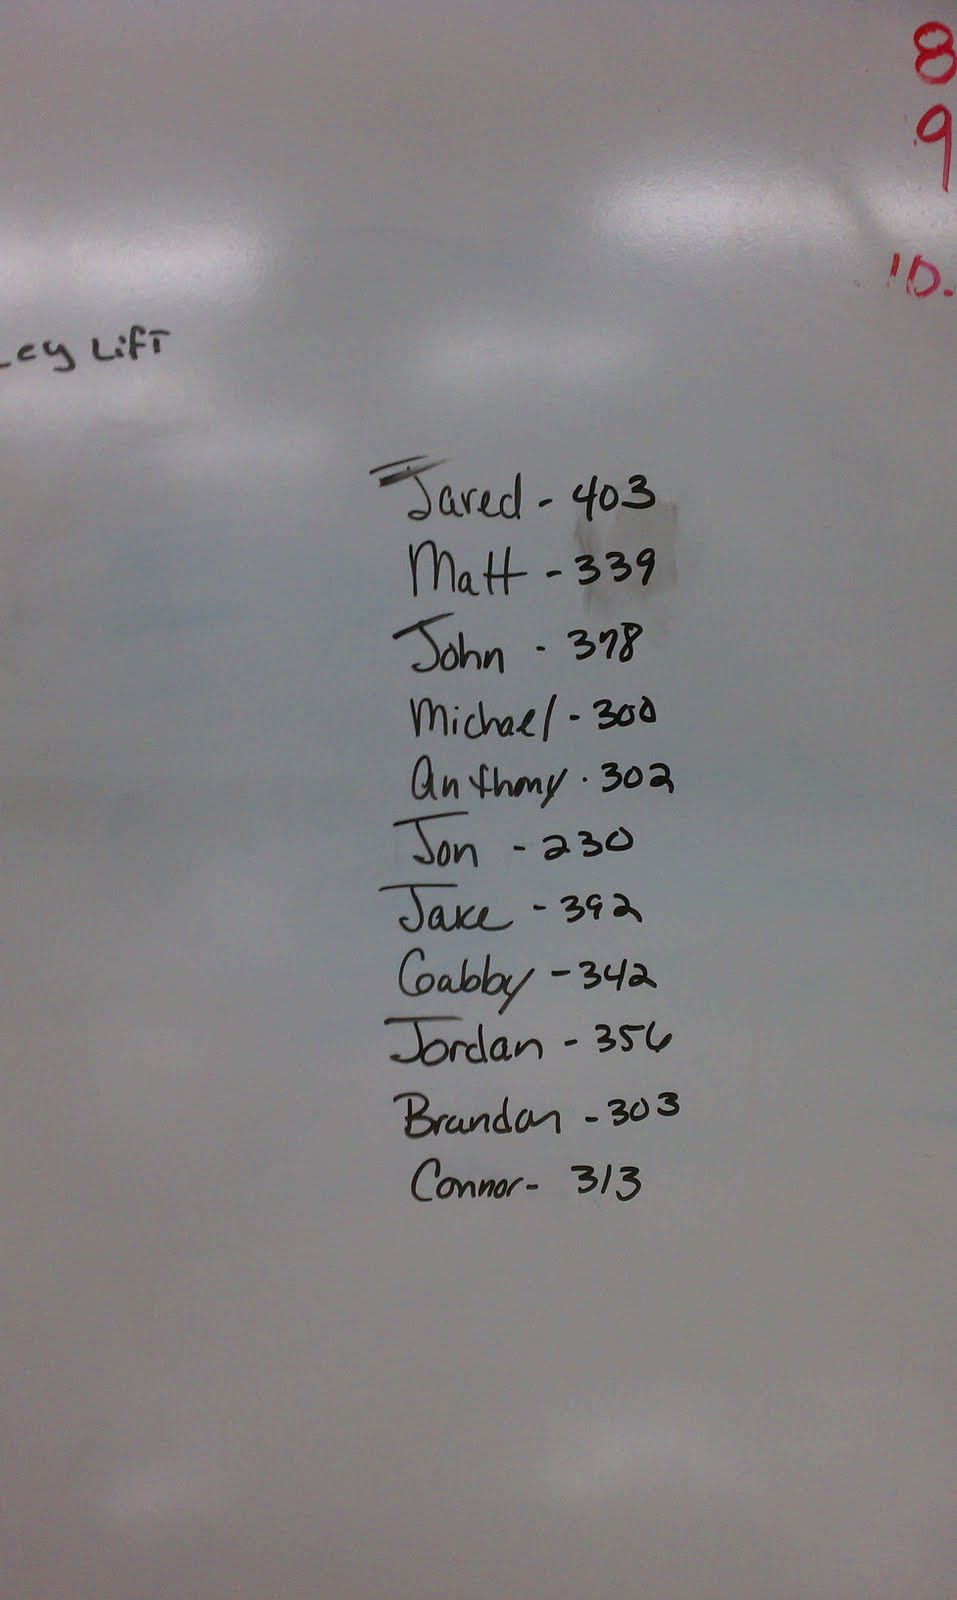 8
9
10.
Leg Lift
Jared - 403
Matt - 339
John - 378
Michael - 300
Anthony - 302
Jon - 230
Jake - 392
Gabby - 342
Jordan - 356
Brandon - 303
Connor - 313